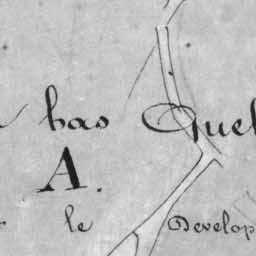 bas Quel
A.
le Develop